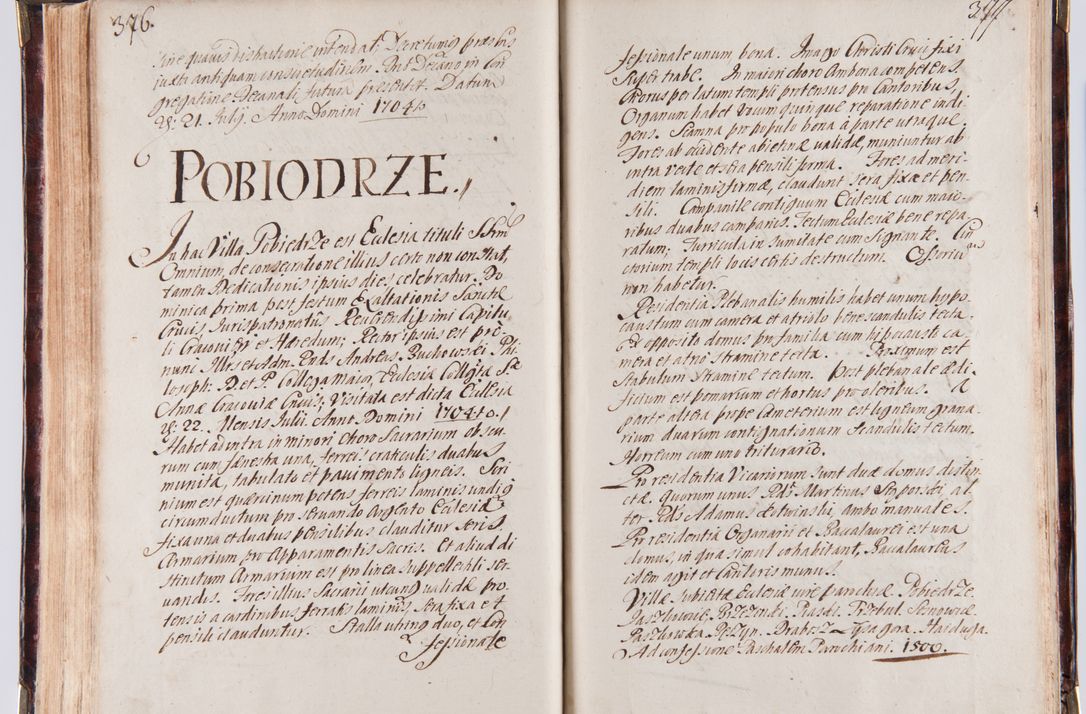 376.
sine quavis distractione intendat, Decretumq; præsens
iuxta antiquam consuetudinem Pat Decano in Con
gregatione Decanali futura presentet. Datum
28: 21. Julij. Anno Domini 1704to
POBIODRZE.
In hac Villa Pobiedrze est Ecclesia tituli SSrum
Omnium, de consecratione illius certo non constat,
tamen Dedicationis ipsius dies celebratur Do
minica prima post festum Exaltationis Sanctæ
Crucis Jurispatronatûs Reverendissimi Capitu
li Cracovien et Hæredum; Rector ipsius est pro
nunc Illris et Adm. Rnds Andreas Buchowski Phi
losoph: D. et P. Collega Maior, Ecclesiæ Collgtæ Stæ
Annæ Cracoviæ Cncus; Visitata est dicta Ecclesia
28: 22. Mensis Julii Anno Domini 1704to.
Habet ad intra in minori Choro Sacrarium obscu
rum cum fenestra una, ferreis craticulis duabus
munita, tabulato et pavimento ligneis. Scri
nium est quærcinum potens ferreis laminis undiq;
circumductum pro servando Argento Ecclesiæ
fixa una et duabus pensilibus clauditur Seris
Armarium pro Apparamentis Sacris. Et aliud di
stinctum Armarium est pro linea Suppellectili ser
vandis. Fores illius Sacrarii utrinq; validæ pro
tensis a cardinibus ferratis laminis, Sera fixa et
pensili clauduntur. Stalla utrinq; duo, et Con
fessionale
377
fessionale unum bona. Imago Christi Crucifixi
Super trabe. In maiori choro Ambona competens.
Chorus per latum templi protensus pro Cantoribus,
Organum habet Unum quinque reparatione indi
gens. Scamna pro populo bona à parte utraque.
Fores ab occidente abietinæ validæ, muniuntur ab
intra vecte et sera pensili firma. Fores ad meri
diem laminis firmæ, claudunt sera fixa et pen
sili. Campanile contiguum Ecclesiæ cum maio
ribus duabus campanis. Tectum Ecclesiæ bene repa
ratum; Turricula in sumitate cum Signante. Cin
ctorium templi locis certis destructum. Ossorium
non habetur.
Residentia Plebanalis humilis habet unum hypo
caustum cum camera et atriolo bene scandulis tecta.
Ex opposito domus pro familia cum hipocausto ca
mera et atrio stramine tecta. Proximum est
stabulum stramine tectum. Post plebanale ædi
ficium est pomarium et hortus pro oleribus. A
parte altera prope Cæmeterium est ligneum grana
rium duarum contignationum scandulis tectum.
Horreum cum uno triturario.
Pro residentia Vicariorum sunt duæ domus distin
ctæ. quorum unus Rds Martinus al
ter Rds Adamus ambo manuales.
Pro residentiâ Organarii et Baccalaurei est una
domus, in qua simul cohabitant, Baccalaureus
idem agit et Cantoris munus.
Villæ subiectæ Ecclesiæ iure parochiæ Pobiedrze
Paszkowka Drabosz Łysagora. Hajduga.
Ad confessione Paschalem Parochiani. 1500.